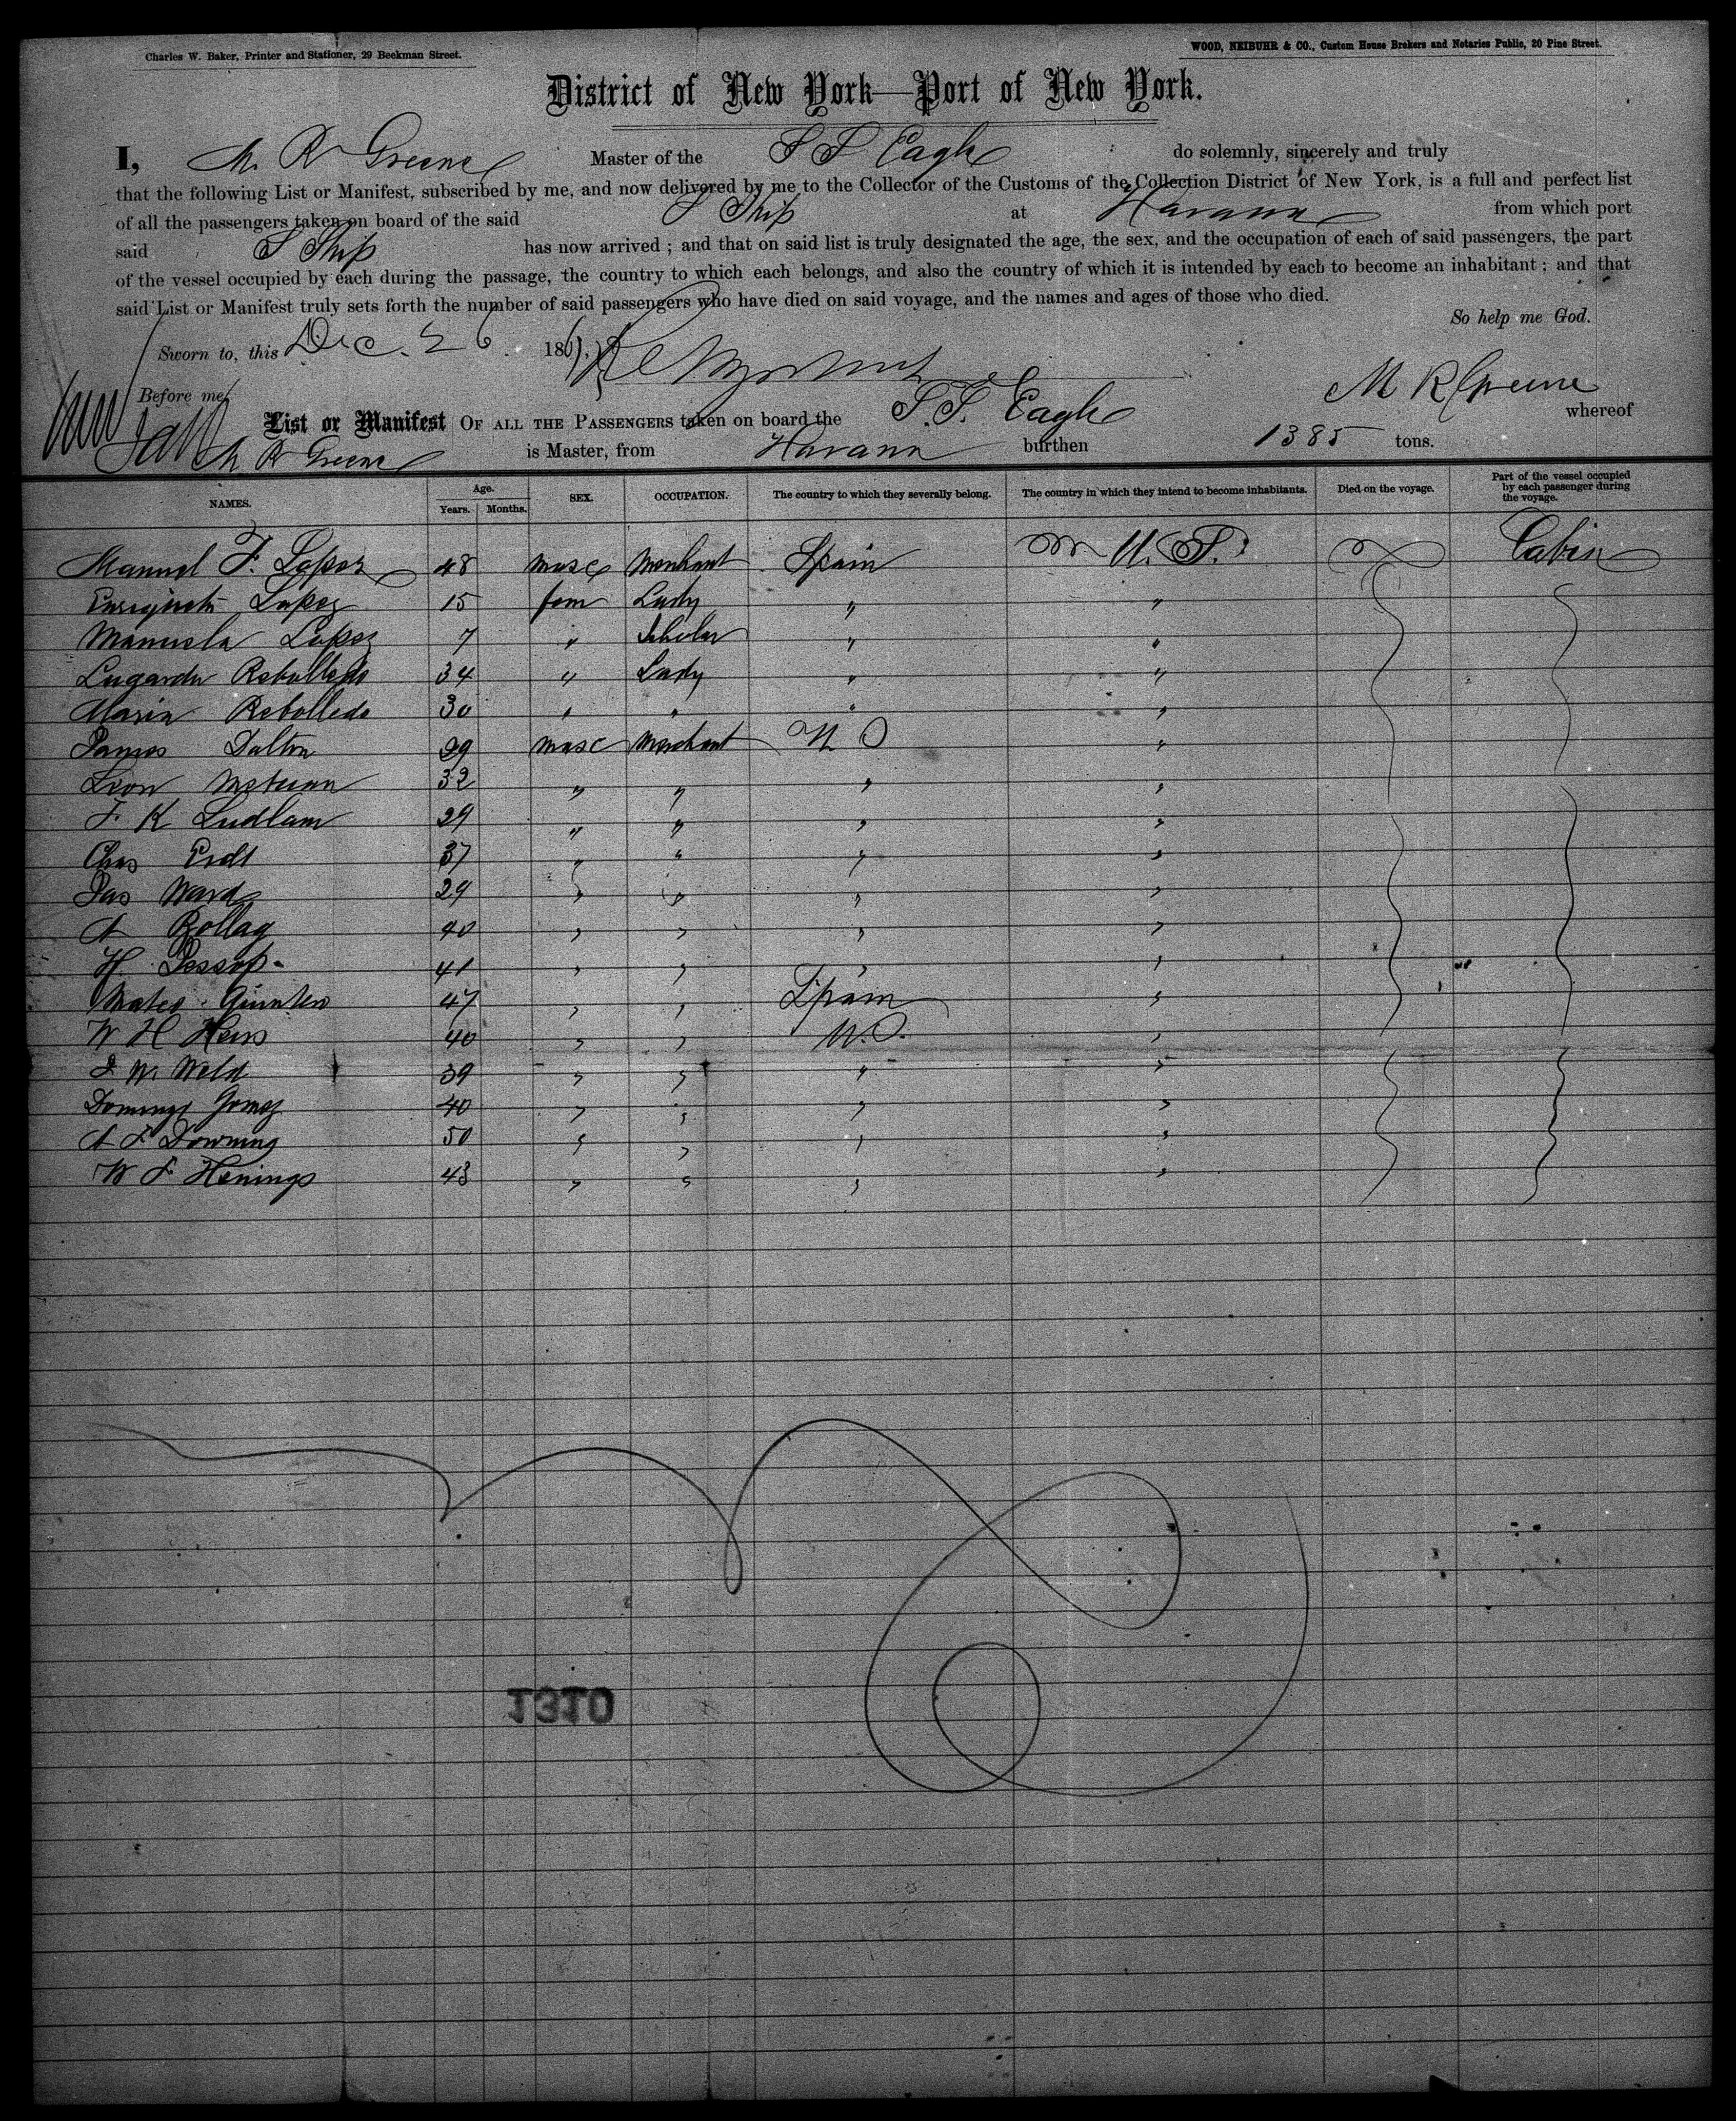 Charles W. Baker, Printer and Stationer, 29 Beekman Street.
WOOD, NEIBUHR & CO., Custom House Brokers and Notaries Public, 20 Pine Street.
District of New York—Port of New York.
I, M. R Greene Master of the S S Eagle do solemnly, sincerely and truly
that the following List or Manifest, subscribed by me, and now delivered by me to the Collector of the Customs of the Collection District of New York, is a full and perfect list
of all the passengers taken on board of the said S Ship at Havana from which port
said S Ship has now arrived ; and that on said list is truly designated the age, the sex, and the occupation of each of said passengers, the part
of the vessel occupied by each during the passage, the country to which each belongs, and also the country of which it is intended by each to become an inhabitant ; and that
said List or Manifest truly sets forth the number of said passengers who have died on said voyage, and the names and ages of those who died.
So help me God.
Sworn to, this Dec. 26 186
Before me, M R Greene
List or Manifest OF ALL THE PASSENGERS taken on board the S.S. Eagle whereof
M R Greene is Master, from Havana burthen 1385 tons.
NAMES. Age. Years. Months. SEX. OCCUPATION. The country to which they severally belong. The country in which they intend to become inhabitants. Died on the voyage. Part of the vessel occupied by each passenger during the voyage.
Manuel F. Lopez 48 masc Merchant Spain U. S. Cabin
Lopez 15 fem Lady " "
Manuela Lopez 7 " Scholar " "
Lugarda Rebolledo 34 " Lady " "
Maria Rebolledo 30 " " " "
James Dalton 29 masc Merchant U S "
Leon 32 " " " "
F K Ludlam 29 " " " "
Chas Erdt 37 " " " "
Jas Ward 29 " " " "
A Bollag 40 " " " "
H Jessop 41 " " " "
Mateo 47 " " Spain "
W H Heiss 40 " " U.S. "
J W. Weld 39 " " " "
Domingo Gomez 40 " " " "
A F Downing 50 " " " "
W F Henings 43 " " " "
1310